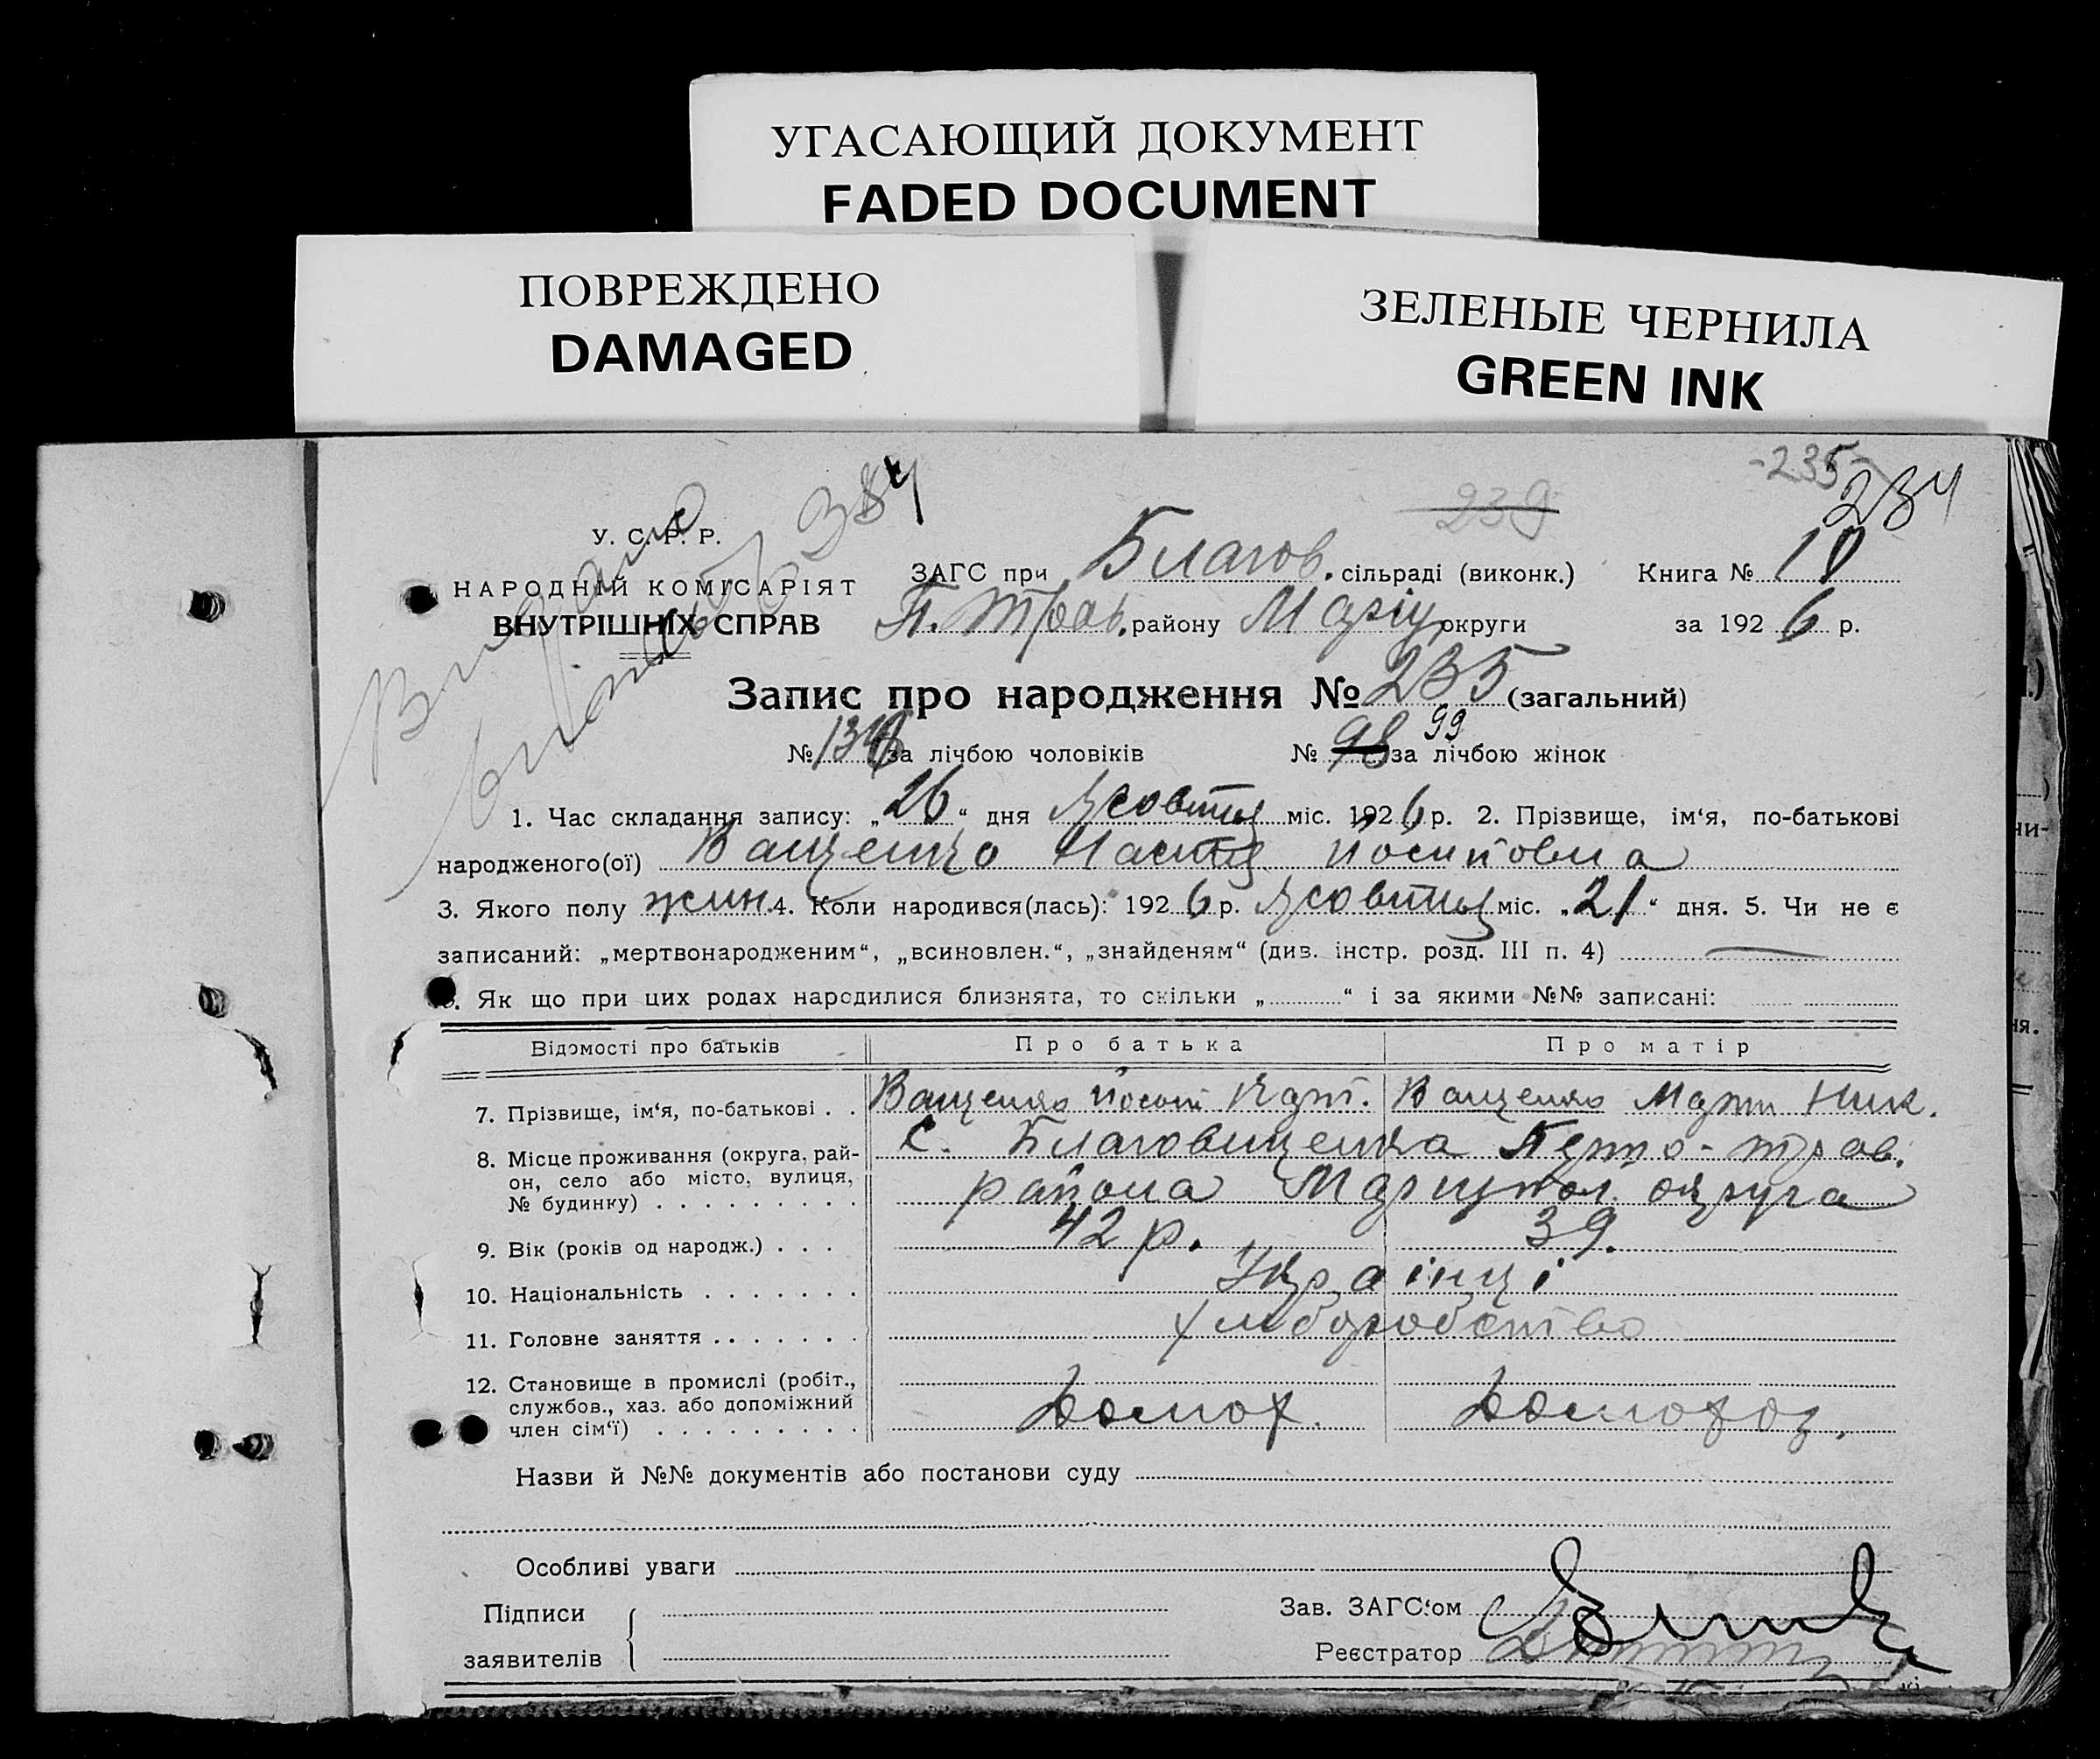 УГАСАЮЩИЙ ДОКУМЕНТ
FADED DOCUMENT
ПОВРЕЖДЕНО
DAMAGED
ЗЕЛЕНЫЕ ЧЕРНИЛА
GREEN INK
-235-
239 234
384
Видано
У. С. Р. Р.
НАРОДНІЙ КОМІСАРІЯТ
ВНУТРІШНІХ СПРАВ
ЗАГС при Благов. сільраді (виконк.) Книга № 10
П. Трав. району Маріу округи за 1926 р.
Запис про народження № 235 (загальний)
№ 134 за лічбою чоловіків № 98 99 за лічбою жінок
1. Час складання запису: „26“ дня Жовтня міс. 1926 р. 2. Прізвище, ім‘я, по-батькові
народженого(ої) Ващенко Настя Йосиповна
3. Якого полу жин. 4. Коли народився(лась): 1926 р. Жовтня міс. „21“ дня. 5. Чи не є
записаний: „мертвонародженим“, „всиновлен.“, „знайденям“ (див. інстр. розд. III п. 4)
6. Як що при цих родах народилися близнята, то скільки „ “ і за якими №№ записані:
Відомості про батьків Про батька Про матір
7. Прізвище, ім‘я, по-батькові . . Ващенко Йосип Ващенко Ник.
8. Місце проживання (округа, рай-
он, село або місто, вулиця,
№ будинку) . . . . . . . . .
с. Благовищенка Перто-трав.
района Мариупол. округа
9. Вік (років од народж.) . . . 42 р. 39.
10. Національність . . . . . . . Українці
11. Головне заняття . . . . . . хліборобство
12. Становище в промислі (робіт.,
службов., хаз. або допоміжний
член сім‘ї) . . . . . . . . .
Домох. Домохоз.
Назви й №№ документів або постанови суду
Особливі уваги
Підписи
заявителів
Зав. ЗАГС‘ом
Реєстратор